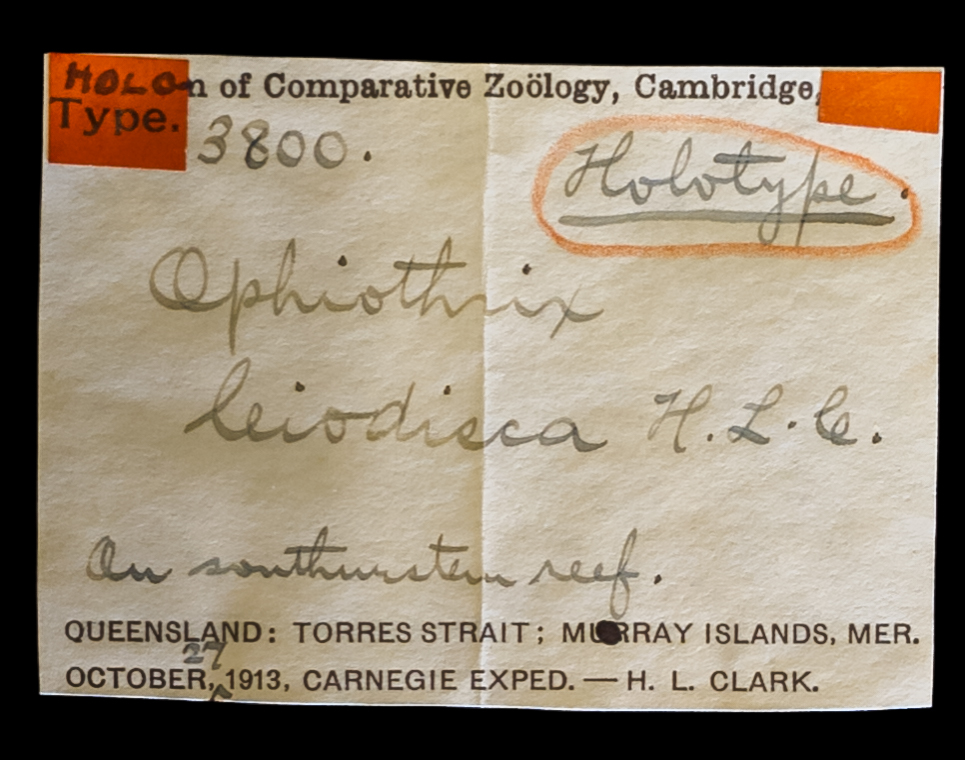 HOLO-n of Comparative Zoölogy, Cambridge,
Type. 3800. Holotype.
Ophiothrix
leiodisca H. L. C.
On southwestern reef.
QUEENSLAND: TORRES STRAIT; MURRAY ISLANDS, MER.
OCTOBER, 27 1913, CARNEGIE EXPED. — H. L. CLARK.